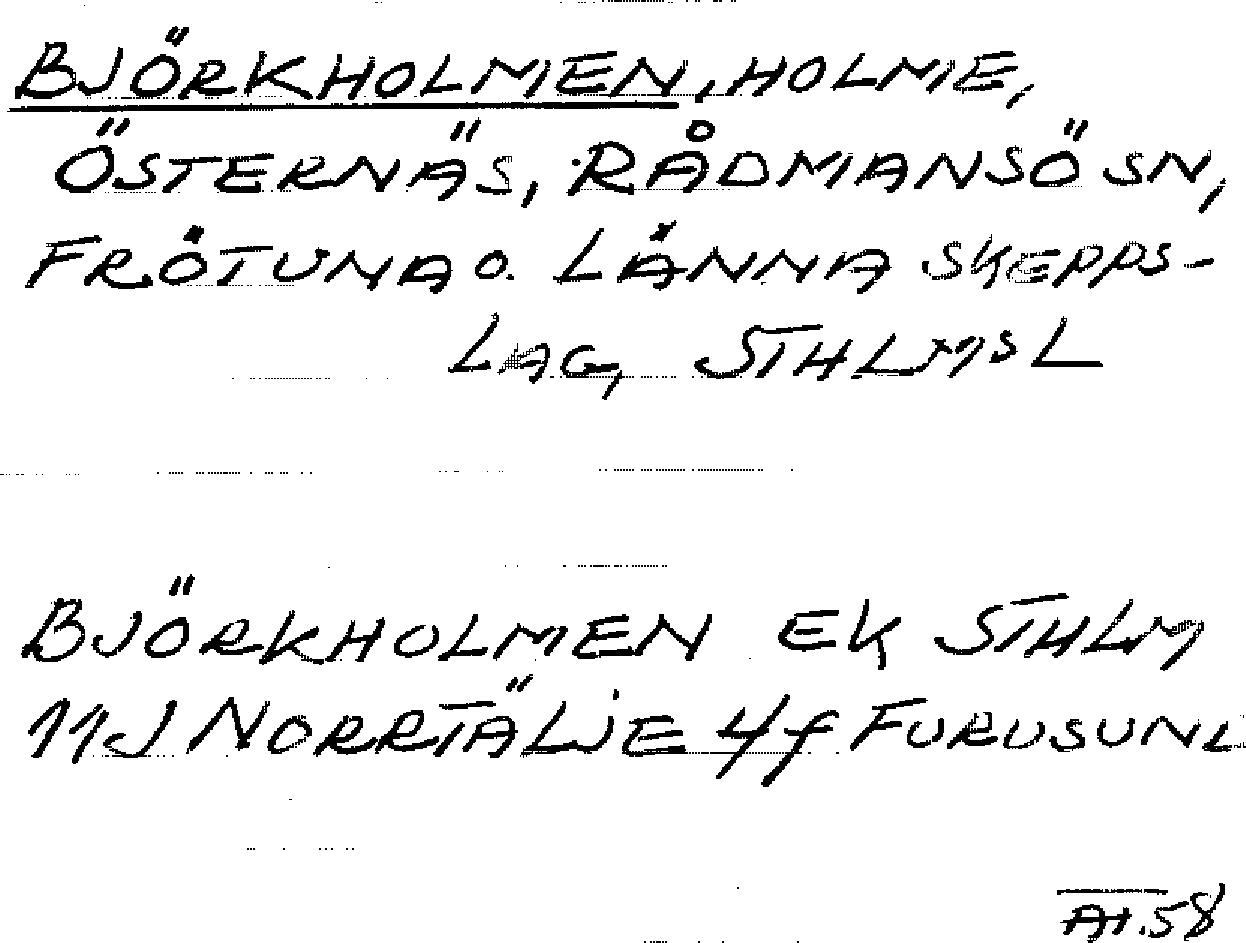 BJÖRKHOLMEN, HOLME,
ÖSTERNÄS, RÅDMANSÖ SN,
FRÖTUNA O. LÄNNA SKEPPS-
LAG, STHLMS L
BJÖRKHOLMEN EK STHLM
11J NORRTÄLJE 4f FURUSUND